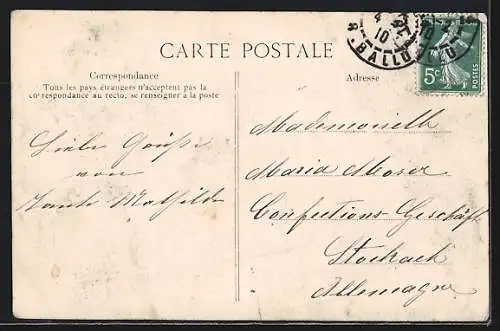 CARTE POSTALE
Correspondance
Tous les pays étrangers n'acceptent pas la
correspondance au recto, se renseigner à la poste
Adresse
5c
POSTES
Liebe Grüße
von
Tante Mathilde
Mademoiselle
Maria Moser
Confections-Geschäft
Stockach
Allemagne